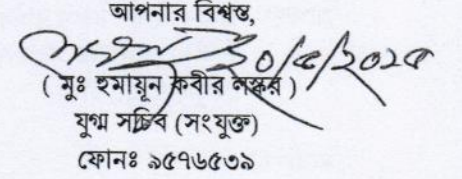 আপনার বিশ্বস্ত,
২০/৫/২০২৫
( মুঃ হুমায়ূন কবীর লস্কর )
যুগ্ম সচিব (সংযুক্ত)
ফোনঃ ৯৫৭৬৫৩৯